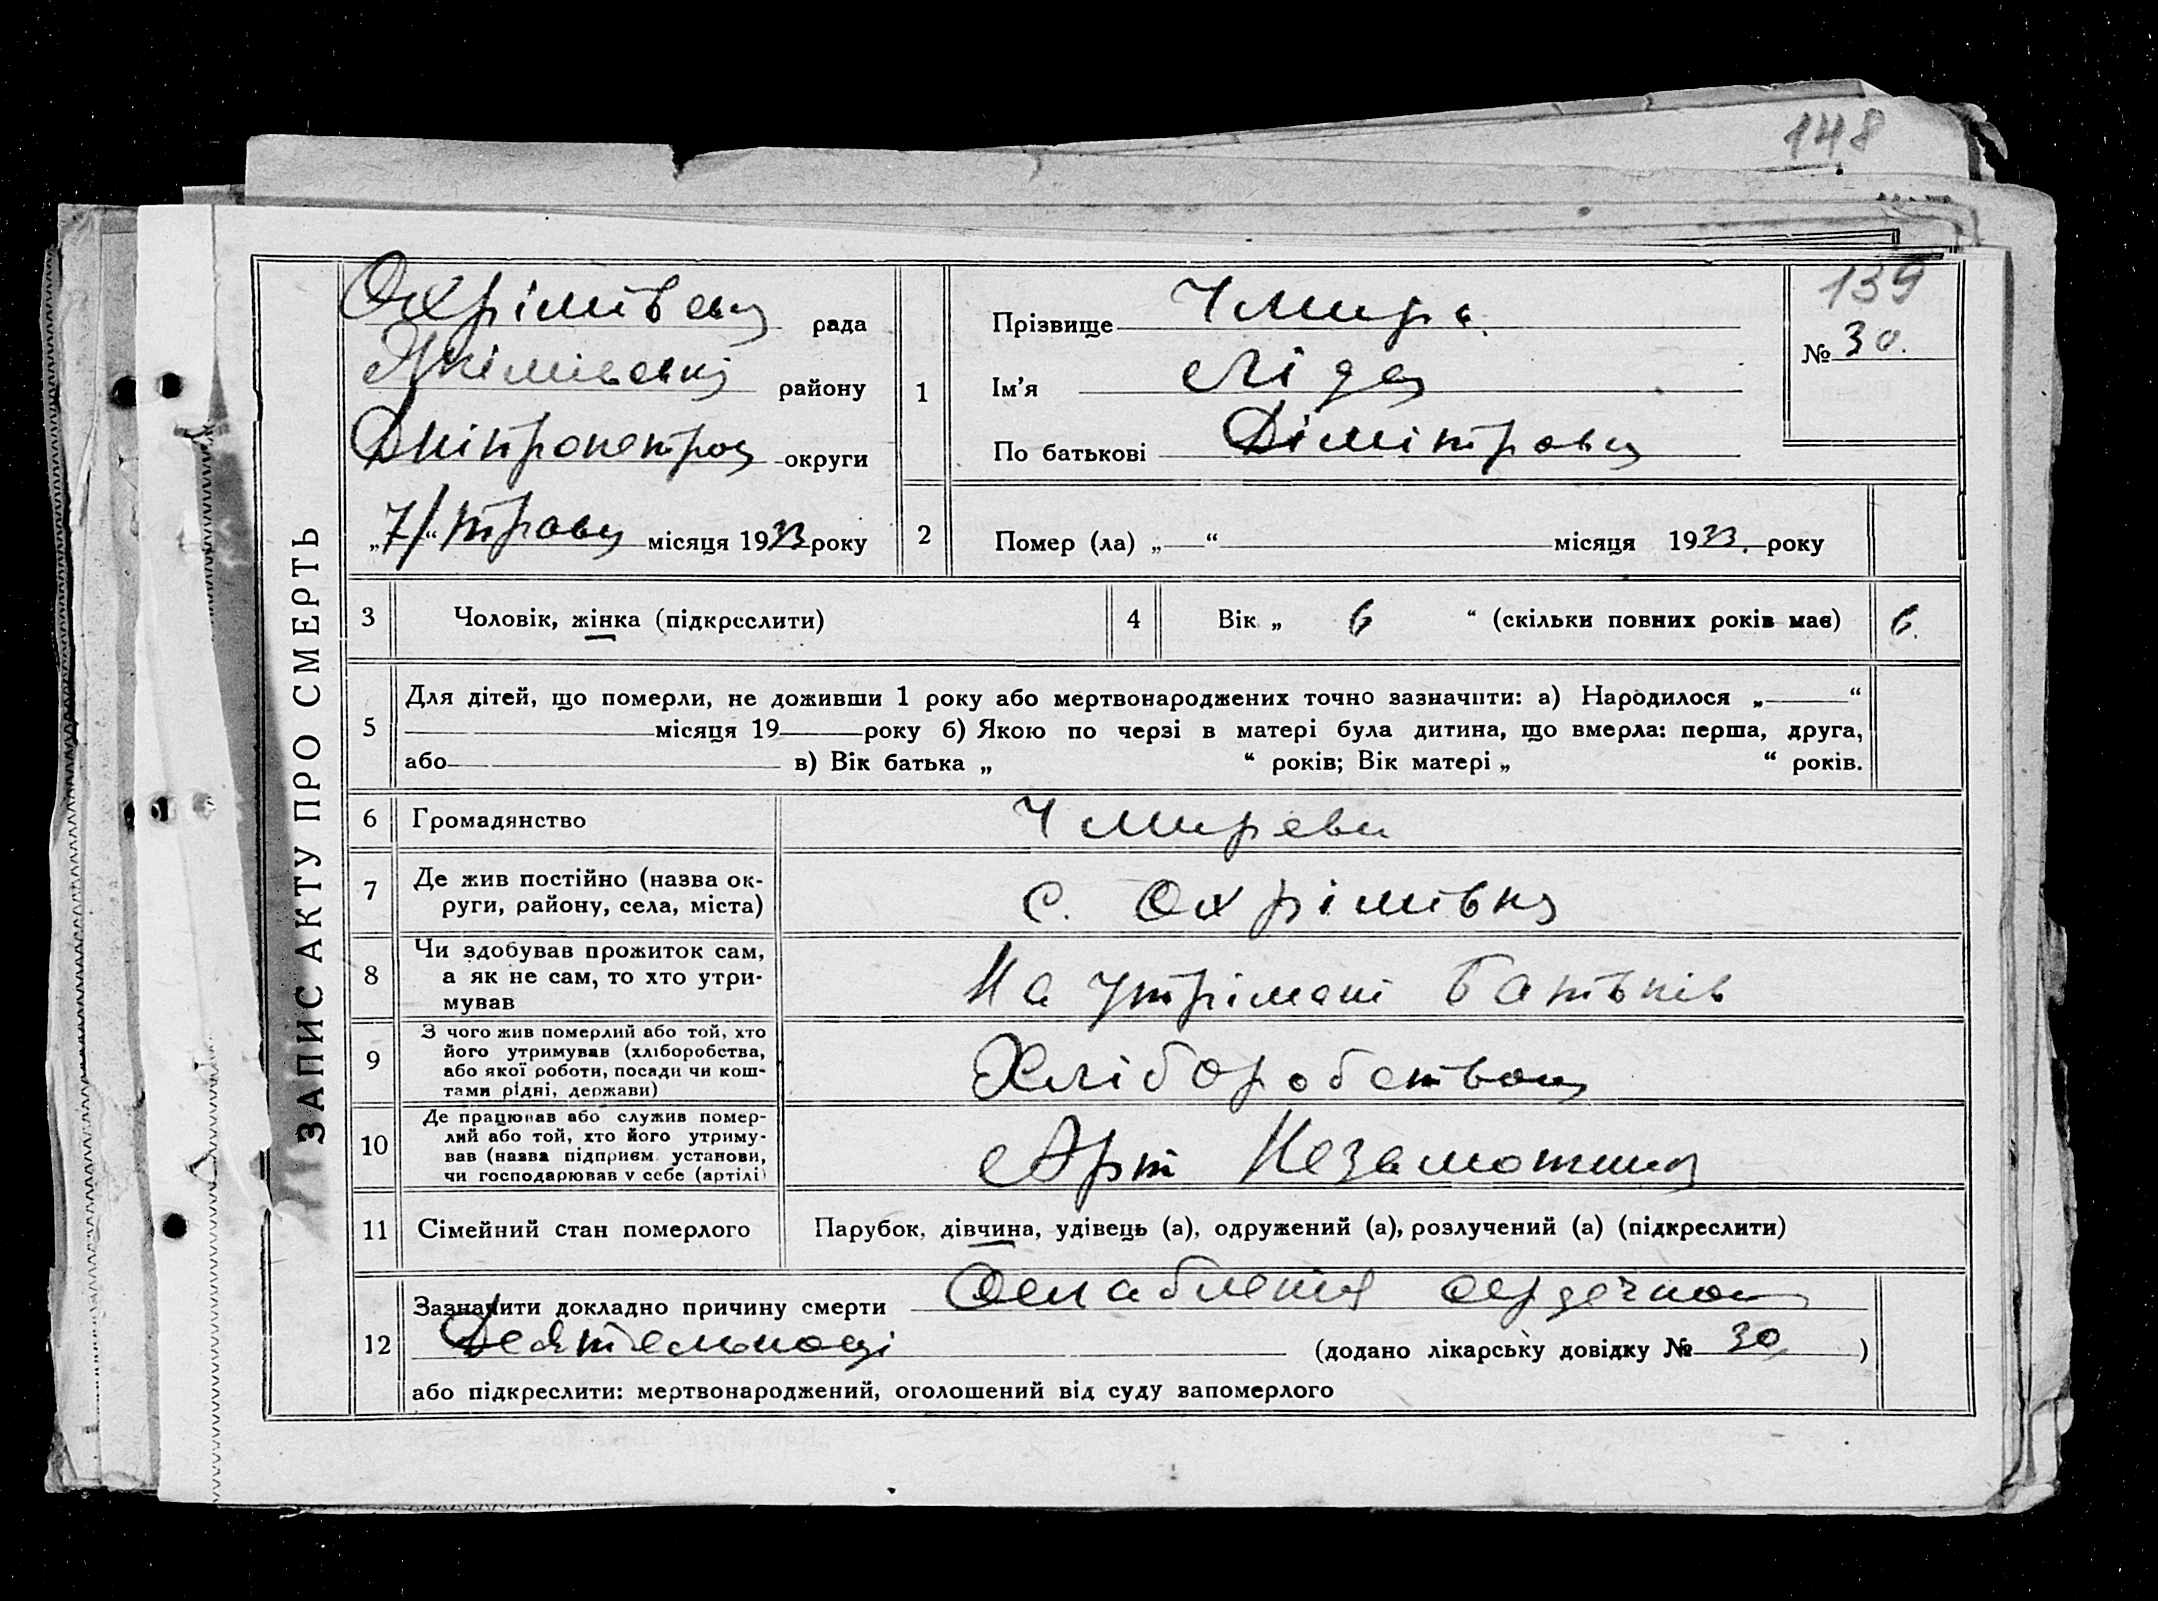 148
139
ЗАПИС АКТУ ПРО СМЕРТЬ
Охрімівська рада
Якімівський району
Дніпропетров округи
„7/“ травня місяця 1933 року
1
Прізвище Чмирь.
Ім’я Ліда
По батькові Дімітровна
№ 30.
2
Помер (ла) „ “ місяця 1933. року
3
Чоловік, жінка (підкреслити)
4
Вік „ 6 “ (скільки повних років має)
6.
5
Для дітей, що померли, не доживши 1 року або мертвонароджених точно зазначити: а) Народилося „ “
місяця 19 року б) Якою по черзі в матері була дитина, що вмерла: перша, друга,
або в) Вік батька „ “ років; Вік матері „ “ років.
6
Громадянство
7
Де жив постійно (назва ок-
руги, району, села, міста)
с. Охрімівка
8
Чи здобував прожиток сам,
а як не сам, то хто утри-
мував
На утрімані батьків
9
З чого жив померлий або той, хто
його утримував (хліборобства,
або якої роботи, посади чи кош-
тами рідні, держави)
Хліборобством
10
Де працював або служив помер-
лий або той, хто його утриму-
вав (назва підприєм. установи,
чи господарював у себе (артілі)
Арт Незаможник
11
Сімейний стан померлого
Парубок, дівчина, удівець (а), одружений (а), розлучений (а) (підкреслити)
12
Зазначити докладно причину смерти Ослаблення сердечной
Деятельносці (додано лікарську довідку № 30 )
або підкреслити: мертвонароджений, оголошений від суду запомерлого